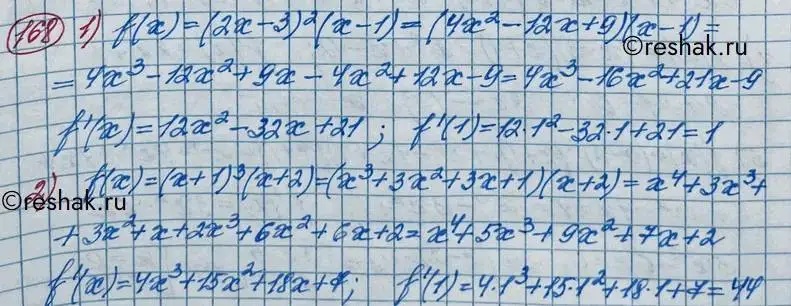 168 1) f(x) = (2x-3)²(x-1) = (4x²-12x+9)(x-1) =
©reshak.ru
= 4x³-12x²+9x-4x²+12x-9 = 4x³-16x²+21x-9
f'(x) = 12x²-32x+21; f'(1) = 12·1²-32·1+21 = 1
2) f(x) = (x+1)³(x+2) = (x³+3x²+3x+1)(x+2) = x⁴+3x³+
©reshak.ru
+3x²+x+2x³+6x²+6x+2 = x⁴+5x³+9x²+7x+2
f'(x) = 4x³+15x²+18x+7; f'(1) = 4·1³+15·1²+18·1+7 = 44